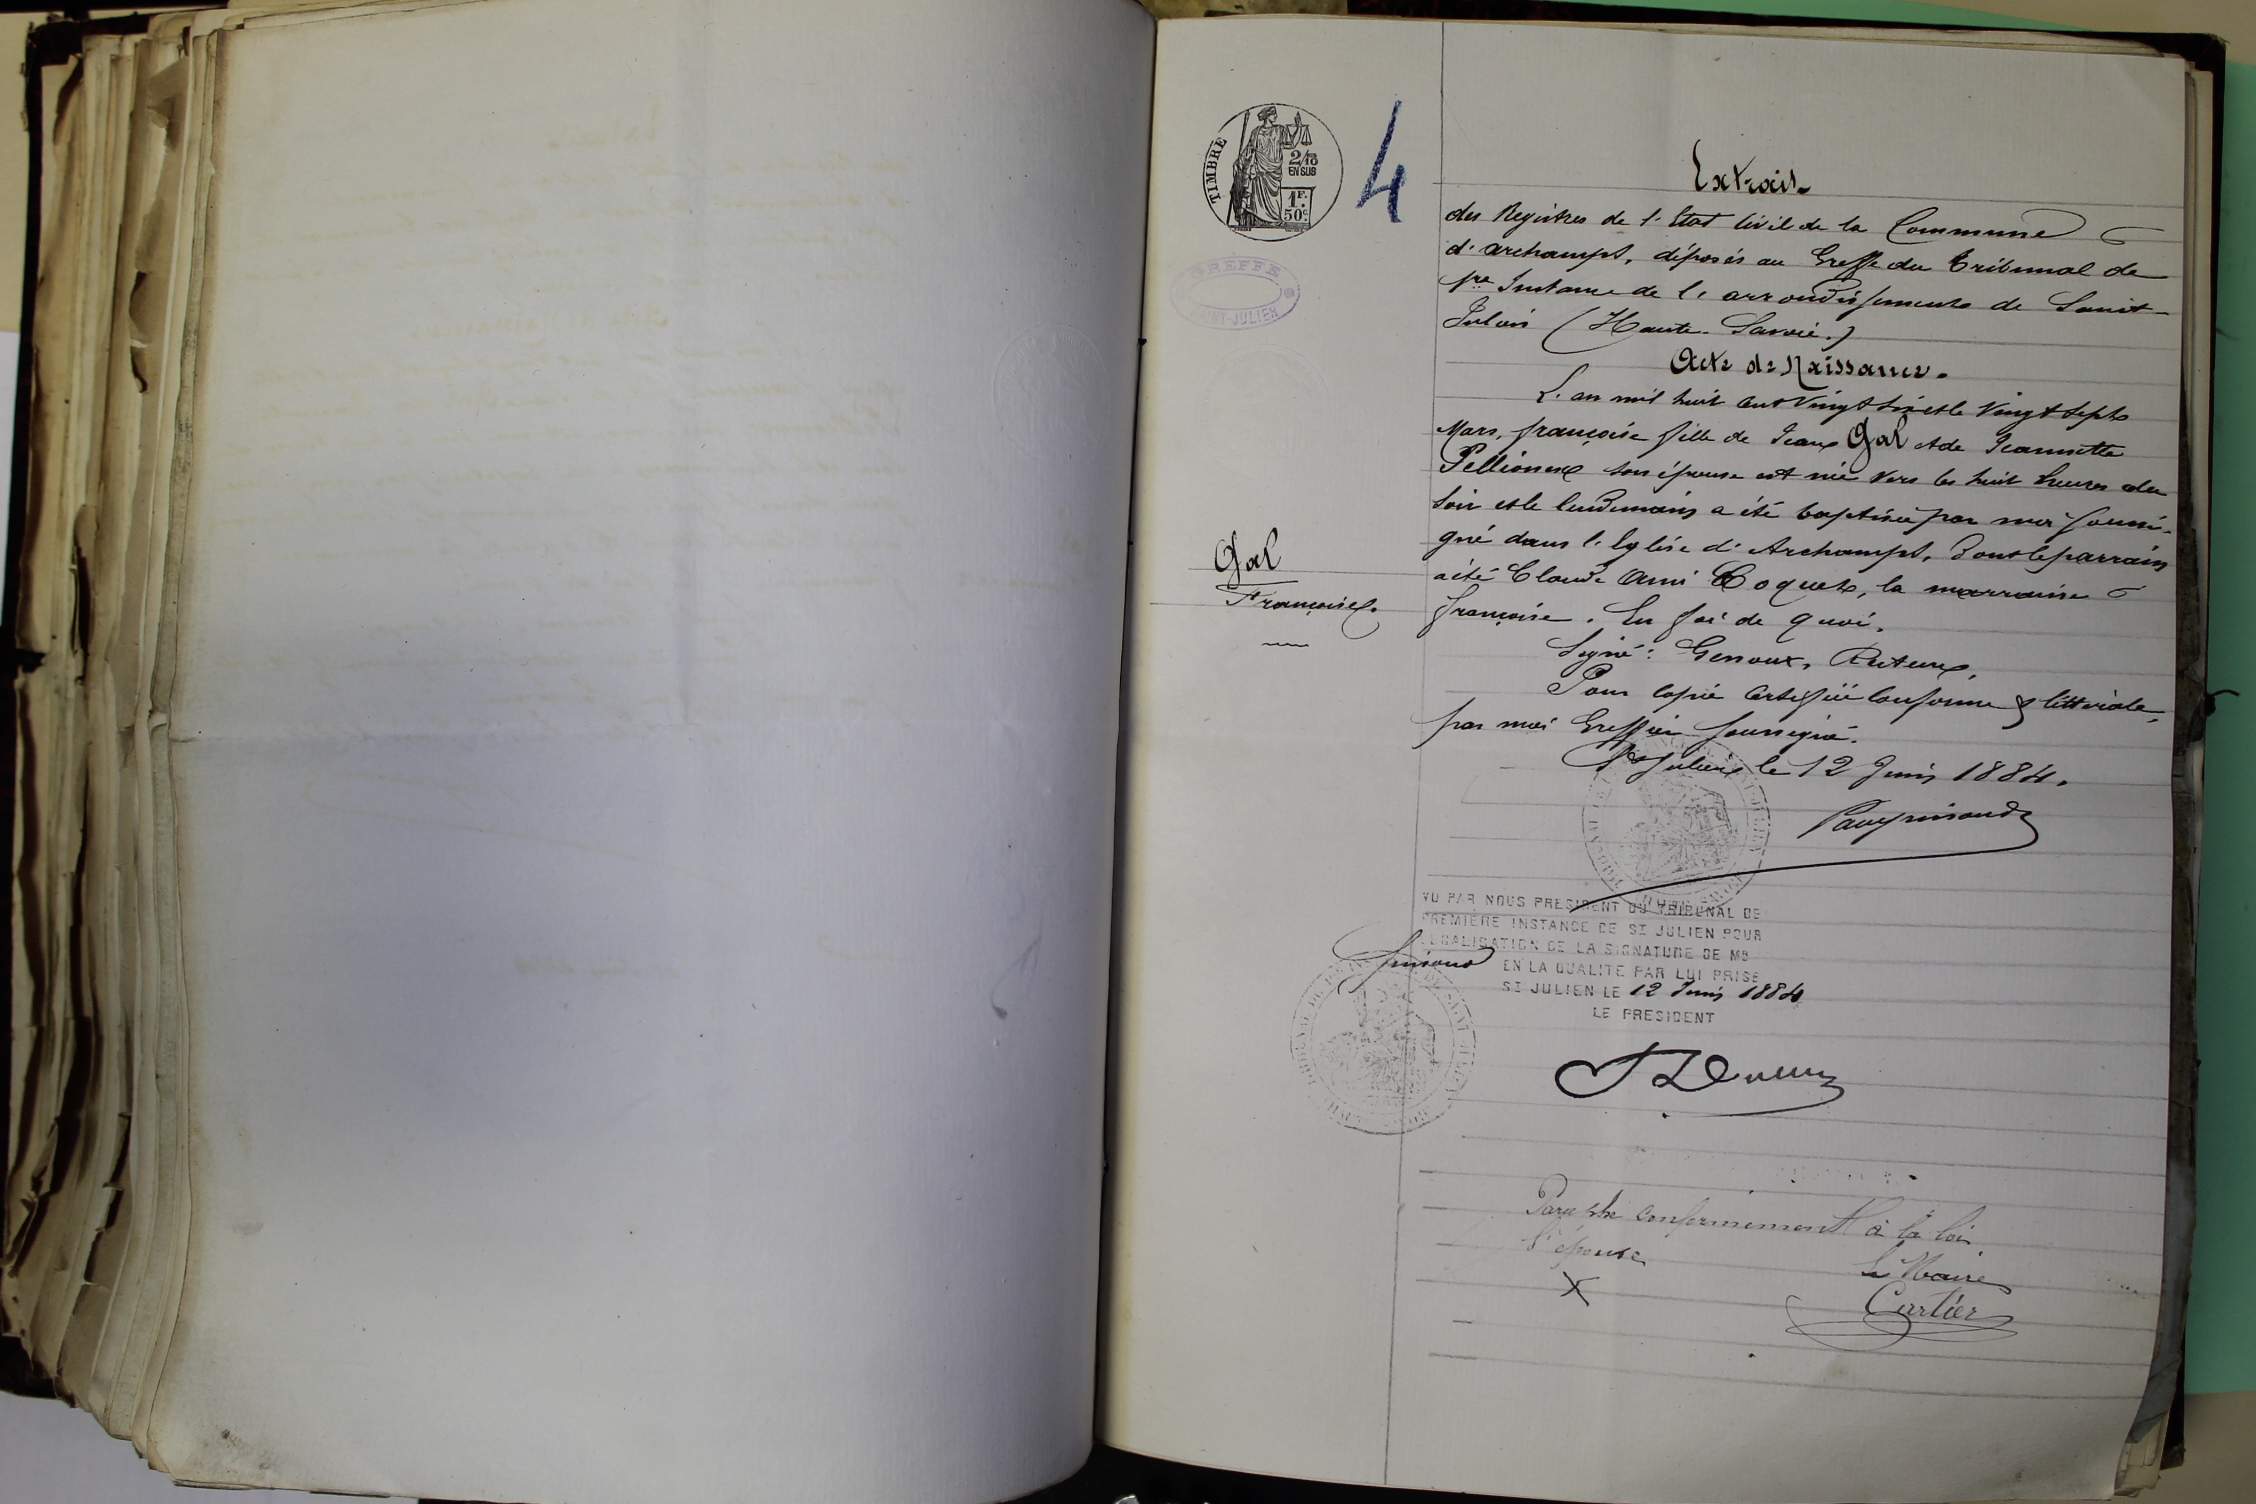 TIMBRE
2/10
EN SUS
1F.
50c
4
GREFFE
SAINT-JULIEN
Extrait
des Registres de l'Etat Civil de la Commune
d'Archamps, déposés au Greffe du Tribunal de
1re Instance de l'arrondissement de Saint-
Julien (Haute-Savoie.)
Acte de Naissance.
L'an mil huit cent vingt six et le vingt sept
Mars, françoise fille de Jean Gal et de Jeannette
Pellionex son épouse est née vers les huit heures du
soir et le lendemain a été baptisée par moi soussi-
gné dans l'Eglise d'Archamps, dont le parrain
a été Claude Ami Coquet, la marraine
françoise. En foi de quoi.
Signé: Genoux, Recteur,
Pour copie certifiée conforme & littérale,
par moi Greffier soussigné.
St Julien le 12 Juin 1884.
Gal
Françoise.
VU PAR NOUS PRESIDENT DU TRIBUNAL DE
PREMIÈRE INSTANCE DE ST JULIEN POUR
LEGALISATION DE LA SIGNATURE DE MR
EN LA QUALITE PAR LUI PRISE
ST JULIEN LE 12 Juin 1884
LE PRESIDENT
Paraphe conformément à la loi
l'épouse
X
Le Maire
Cartier